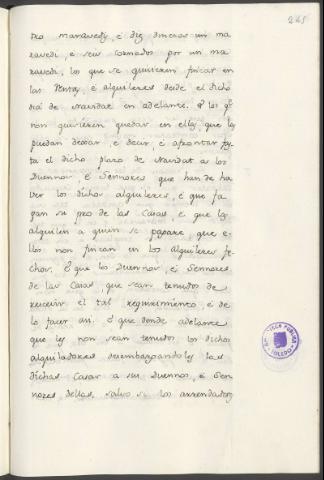 245
tro maravedis, é diez dineros un ma
ravedi, é seis cornados por un ma
ravedi, los que se quisieren fincar en
las Rentas, é alquileres desde el dicho
dia de Navidat en adelante. E los q.e
non quisieren quedar en ellas, que las
puedan dexar, é decir, é afrontar fas
ta el dicho plazo de Navidat a los
Duennos é Sennores que han de ha
ver los dichos alquileres, é que fa
gan su pro de las Casas, é que las
alquilen a quien se pagare, que e
llos non fincan en los alquileres fe
chos. E que los Duennos, é Sennores
de las Casas, que sean tenudos de
rescevir el tal requirimiento, é de
lo facer asi. E que donde adelante
que les non sean tenudos los dichos
alquiladores desembargandoles las
dichas Casas a sus Duennos, é Sen
nores dellas, salvo si los arrendados
PUBLICA
TOLEDO